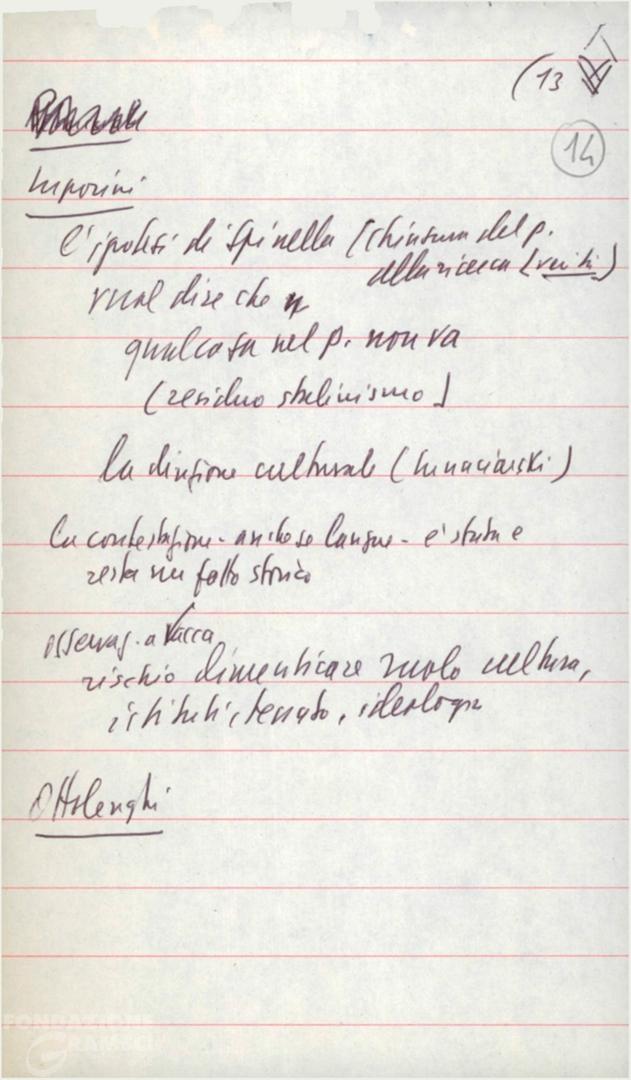 (13
14
Luporini
l'ipotesi di Spinella (chiusura del p.
alla ricerca (verità)
vuol dire che
qualcosa nel p. non va
(residuo stalinismo)
la direzione culturale (Lunaciarski)
La contestazione - anche se langue - e' stata e
resta un fatto storico
osservaz. a Vacca
rischio dimenticare ruolo cultura,
istituti, ideologia
Ottolenghi
FONDAZIONE
GRAMSCI